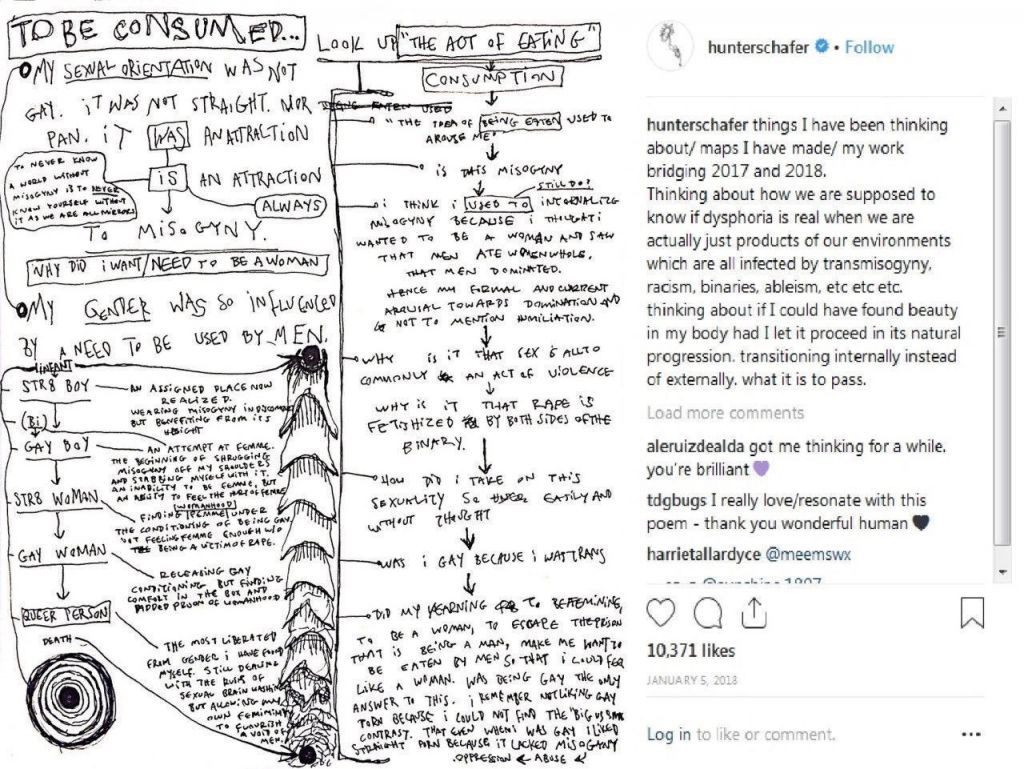 TO BE CONSUMED...
MY SEXUAL ORIENTATION WAS NOT
GAY. iT WAS NOT STRAIGHT. NOR
PAN. iT WAS AN ATTRACTION
TO NEVER KNOW
A WORLD WITHOUT
MISOGYNY IS TO NEVER
KNOW YOURSELF WITHOUT
IT AS WE ARE ALL MIRRORS
IS AN ATTRACTION
ALWAYS
TO MISOGYNY.
WHY DID i WANT/NEED TO BE A WOMAN
MY GENDER WAS SO INFLUENCED
BY A NEED TO BE USED BY MEN.
INFANT
STR8 BOY
AN ASSIGNED PLACE NOW
REALIZED.
WEARING MISOGYNY IN DISCOMFORT
BUT BENEFITING FROM ITS
(Bi)
GAY BOY
AN ATTEMPT AT FEMME.
THE BEGINNING OF SHRUGGING
MISOGYNY OFF MY SHOULDERS
AND STABBING MYSELF WITH IT.
AN INABILITY TO BE FEMME, BUT
AN ABILITY TO FEEL THE HURT OF FEMME
STR8 WOMAN
WOMANHOOD
FINDING FEMME UNDER
THE CONDITIONING OF BEING GAY.
NOT FEELING FEMME ENOUGH W/O
BEING A VICTIM OF RAPE.
GAY WOMAN
RELEASING GAY
CONDITIONING BUT FINDING
COMFORT IN THE BOX AND
PADDED PRISON OF WOMANHOOD
QUEER PERSON
DEATH
THE MOST LIBERATED
FROM GENDER i HAVE FOUND
MYSELF. STILL DEALING
WITH THE RUINS OF
SEXUAL BRAIN WASHING
BUT ALLOWING MY
OWN FEMININITY
TO FLOURISH
A VOID OF
MEN.
LOOK UP "THE ACT OF EATING"
CONSUMPTION
"THE IDEA OF BEING EATEN USED TO
AROUSE ME"
IS THIS MISOGYNY
STILL DO?
i THINK i USED TO INTERNALIZE
MISOGYNY BECAUSE i THOUGHT i
WANTED TO BE A WOMAN AND SAW
THAT MEN ATE WOMEN WHOLE.
THAT MEN DOMINATED.
HENCE MY FORMAL AND CURRENT
AROUSAL TOWARDS DOMINATION AND
NOT TO MENTION HUMILIATION.
WHY IS IT THAT SEX IS ALL TO
COMMONLY AN ACT OF VIOLENCE
WHY IS iT THAT RAPE IS
FETISHIZED BY BOTH SIDES OF THE
BINARY.
HOW DID i TAKE ON THIS
SEXUALITY SO EATILY AND
WITHOUT THOUGHT
WAS i GAY BECAUSE i WAS TRANS
DID MY YEARNING TO BE FEMININE,
TO BE A WOMAN, TO ESCAPE THE PRISON
THAT IS BEING A MAN, MAKE ME WANT TO
BE EATEN BY MEN SO THAT i COULD FEEL
LIKE A WOMAN. WAS BEING GAY THE ONLY
ANSWER TO THIS. i REMEMBER NOT LIKING GAY
PORN BECAUSE i COULD NOT FIND THE "BIG VS SMALL
CONTRAST. THAT EVEN WHEN i WAS GAY i LIKED
STRAIGHT PORN BECAUSE IT LACKED MISOGYNY
OPPRESSION ABUSE
hunterschafer • Follow
hunterschafer things I have been thinking
about/ maps I have made/ my work
bridging 2017 and 2018.
Thinking about how we are supposed to
know if dysphoria is real when we are
actually just products of our environments
which are all infected by transmisogyny,
racism, binaries, ableism, etc etc etc.
thinking about if I could have found beauty
in my body had I let it proceed in its natural
progression. transitioning internally instead
of externally. what it is to pass.
Load more comments
aleruizdealda got me thinking for a while.
you're brilliant 💜
tdgbugs I really love/resonate with this
poem - thank you wonderful human 🖤
harrietallardyce @meemswx
10,371 likes
JANUARY 5, 2018
Log in to like or comment.